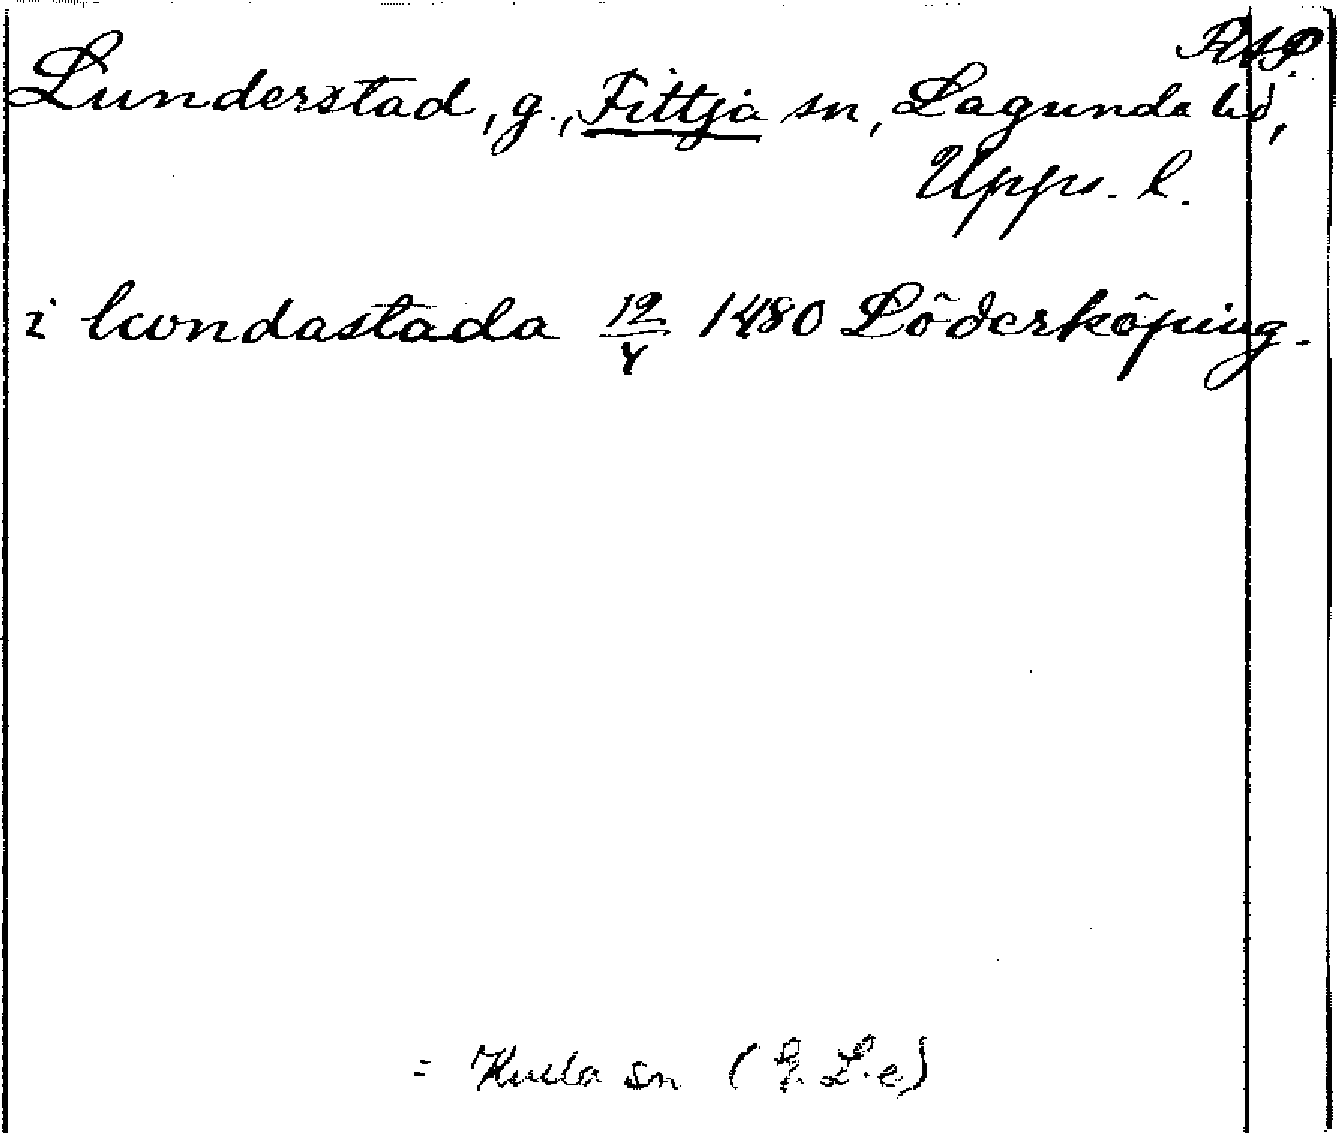 RAP.
Lunderstad, g., Fittja sn, Lagunda hd,
Upps. l.
i lwndastada 12/4 1480 Söderköping.
= Kulla sn (G. L-e)